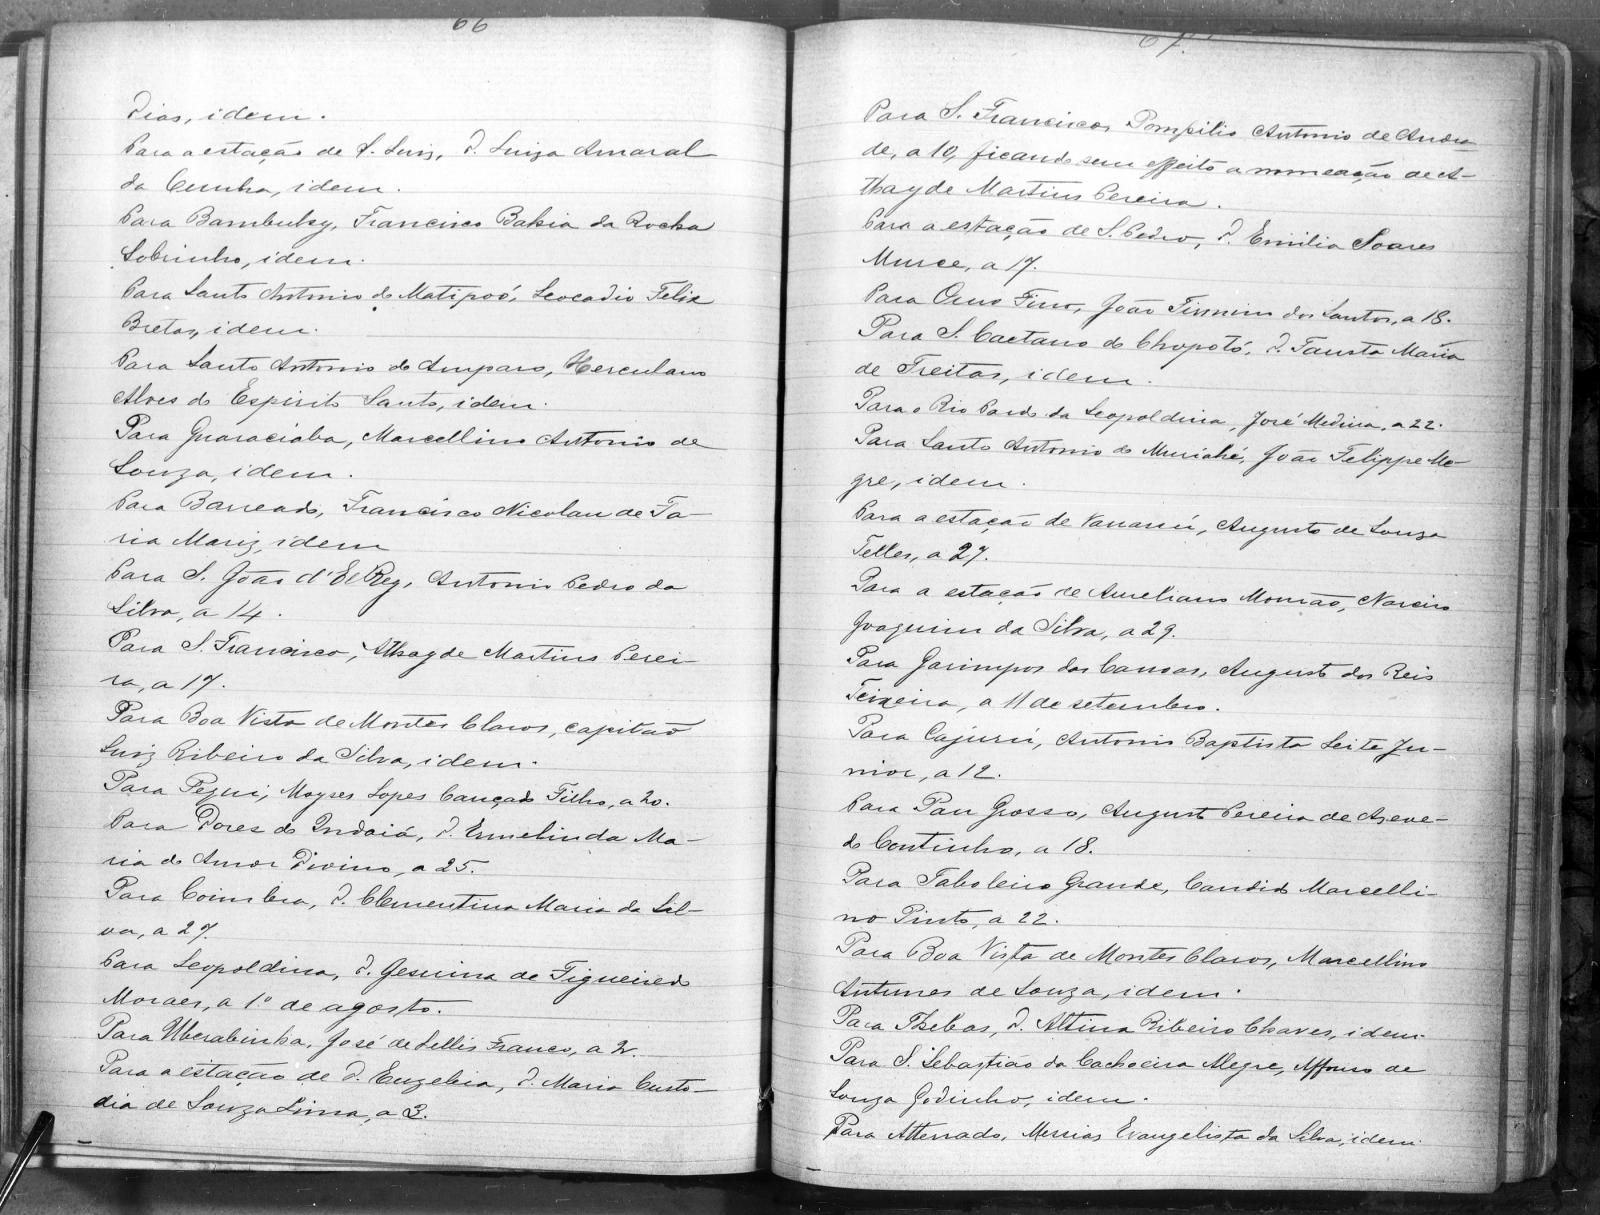 66
Dias, idem.
Para a estação de S. Luiz, D. Luiza Amaral
da Cunha, idem.
Para Bambuhy, Francisco Bahia da Rocha
Sobrinho, idem.
Para Santo Antonio do Matipoó, Leocadio Felix
Bretas, idem.
Para Santo Antonio do Amparo, Herculano
Alves do Espirito Santo, idem.
Para Guaraciaba, Marcellino Antonio de
Souza, idem.
Para Barreado, Francisco Nicolau de Fa-
ria Mariz, idem
Para S. João d'El Rey, Antonio Pedro da
Silva, a 14.
Para S. Francisco, Athayde Martins Perei-
ra, a 17.
Para Boa Vista de Montes Claros, capitão
Luiz Ribeiro da Silva, idem.
Para Pequi, Moyses Lopes Cançado Filho, a 20.
Para Dores do Indaiá, D. Ermelinda Ma-
ria do Amor Divino, a 25.
Para Coimbra, D. Clementina Maria da Sil-
va, a 27.
Para Leopoldina, D. Gesuina de Figueiredo
Moraes, a 1º de agosto.
Para Uberabinha, José de Lellis Franco, a 2.
Para a estação de D. Euzebia, D. Maria Custo-
dia de Souza Lima, a 3.
67.
Para S. Francisco, Pompilio Antonio de Andra
de, a 10, ficando sem effeito a nomeação de A-
thayde Martins Pereira.
Para a estação de S. Pedro, D. Emilia Soares
Murce, a 17.
Para Ouro Fino, João Firmino dos Santos, a 18.
Para S. Caetano do Chopotó, D. Fausta Maria
de Freitas, idem.
Para o Rio Pardo da Leopoldina, José Medina, a 22.
Para Santo Antonio do Muriahé, João Felippe Me-
gre, idem.
Para a estação de Vanassú, Augusto de Souza
Telles, a 27.
Para a estação de Aureliano Mourão, Narciso
Joaquim da Silva, a 29.
Para Garimpos das Canoas, Augusto dos Reis
Teixeira, a 11 de setembro.
Para Cajurú, Antonio Baptista Leite Ju-
nior, a 12.
Para Pau Grosso, Augusto Pereira de Azeve-
do Coutinho, a 18.
Para Taboleiro Grande, Candido Marcelli-
no Pinto, a 22.
Para Boa Vista de Montes Claros, Marcellino
Antunes de Souza, idem.
Para Thebas, D. Altina Ribeiro Chaves, idem.
Para S. Sebastião da Cachoeira Alegre, Affonso de
Souza Godinho, idem.
Para Atterrado, Messias Evangelista da Silva, idem.